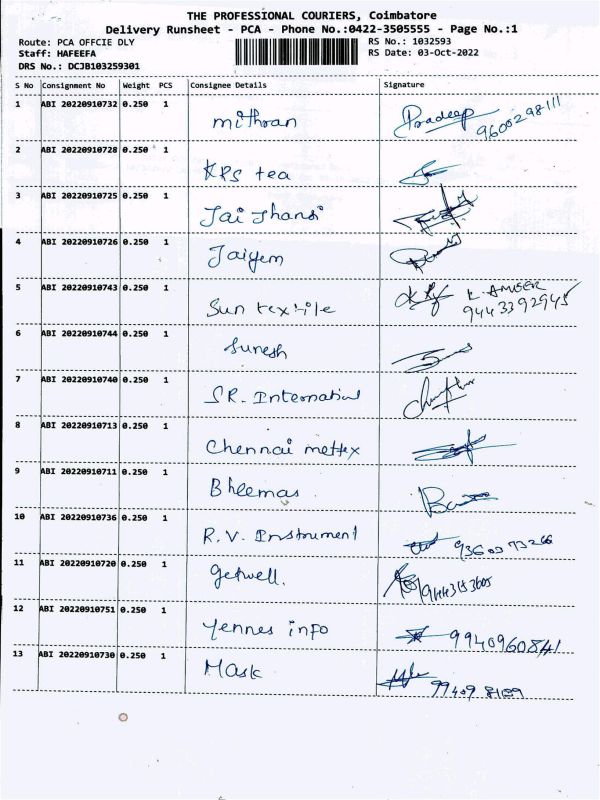 THE PROFESSIONAL COURIERS, Coimbatore
Delivery Runsheet - PCA - Phone No.:0422-3505555 - Page No.:1
Route: PCA OFFCIE DLY
RS No.: 1032593
Staff: HAFEEFA
RS Date: 03-Oct-2022
DRS No.: DCJB103259301
S No Consignment No Weight PCS Consignee Details Signature
1 ABI 20220910732 0.250 1 mithran Pradeep
9600298111
2 ABI 20220910728 0.250 1 KRS tea
3 ABI 20220910725 0.250 1 Jai Jhansi
4 ABI 20220910726 0.250 1 Jaiyem
5 ABI 20220910743 0.250 1 Sun textile
9443392945
6 ABI 20220910744 0.250 1 Suresh
7 ABI 20220910740 0.250 1 SR. International
8 ABI 20220910713 0.250 1 Chennai mettex
9 ABI 20220910711 0.250 1 Bheemas
10 ABI 20220910736 0.250 1 R.V. Instrument
11 ABI 20220910720 0.250 1 getwell.
12 ABI 20220910751 0.250 1 Yennes info 9940960841
13 ABI 20220910730 0.250 1 Mask